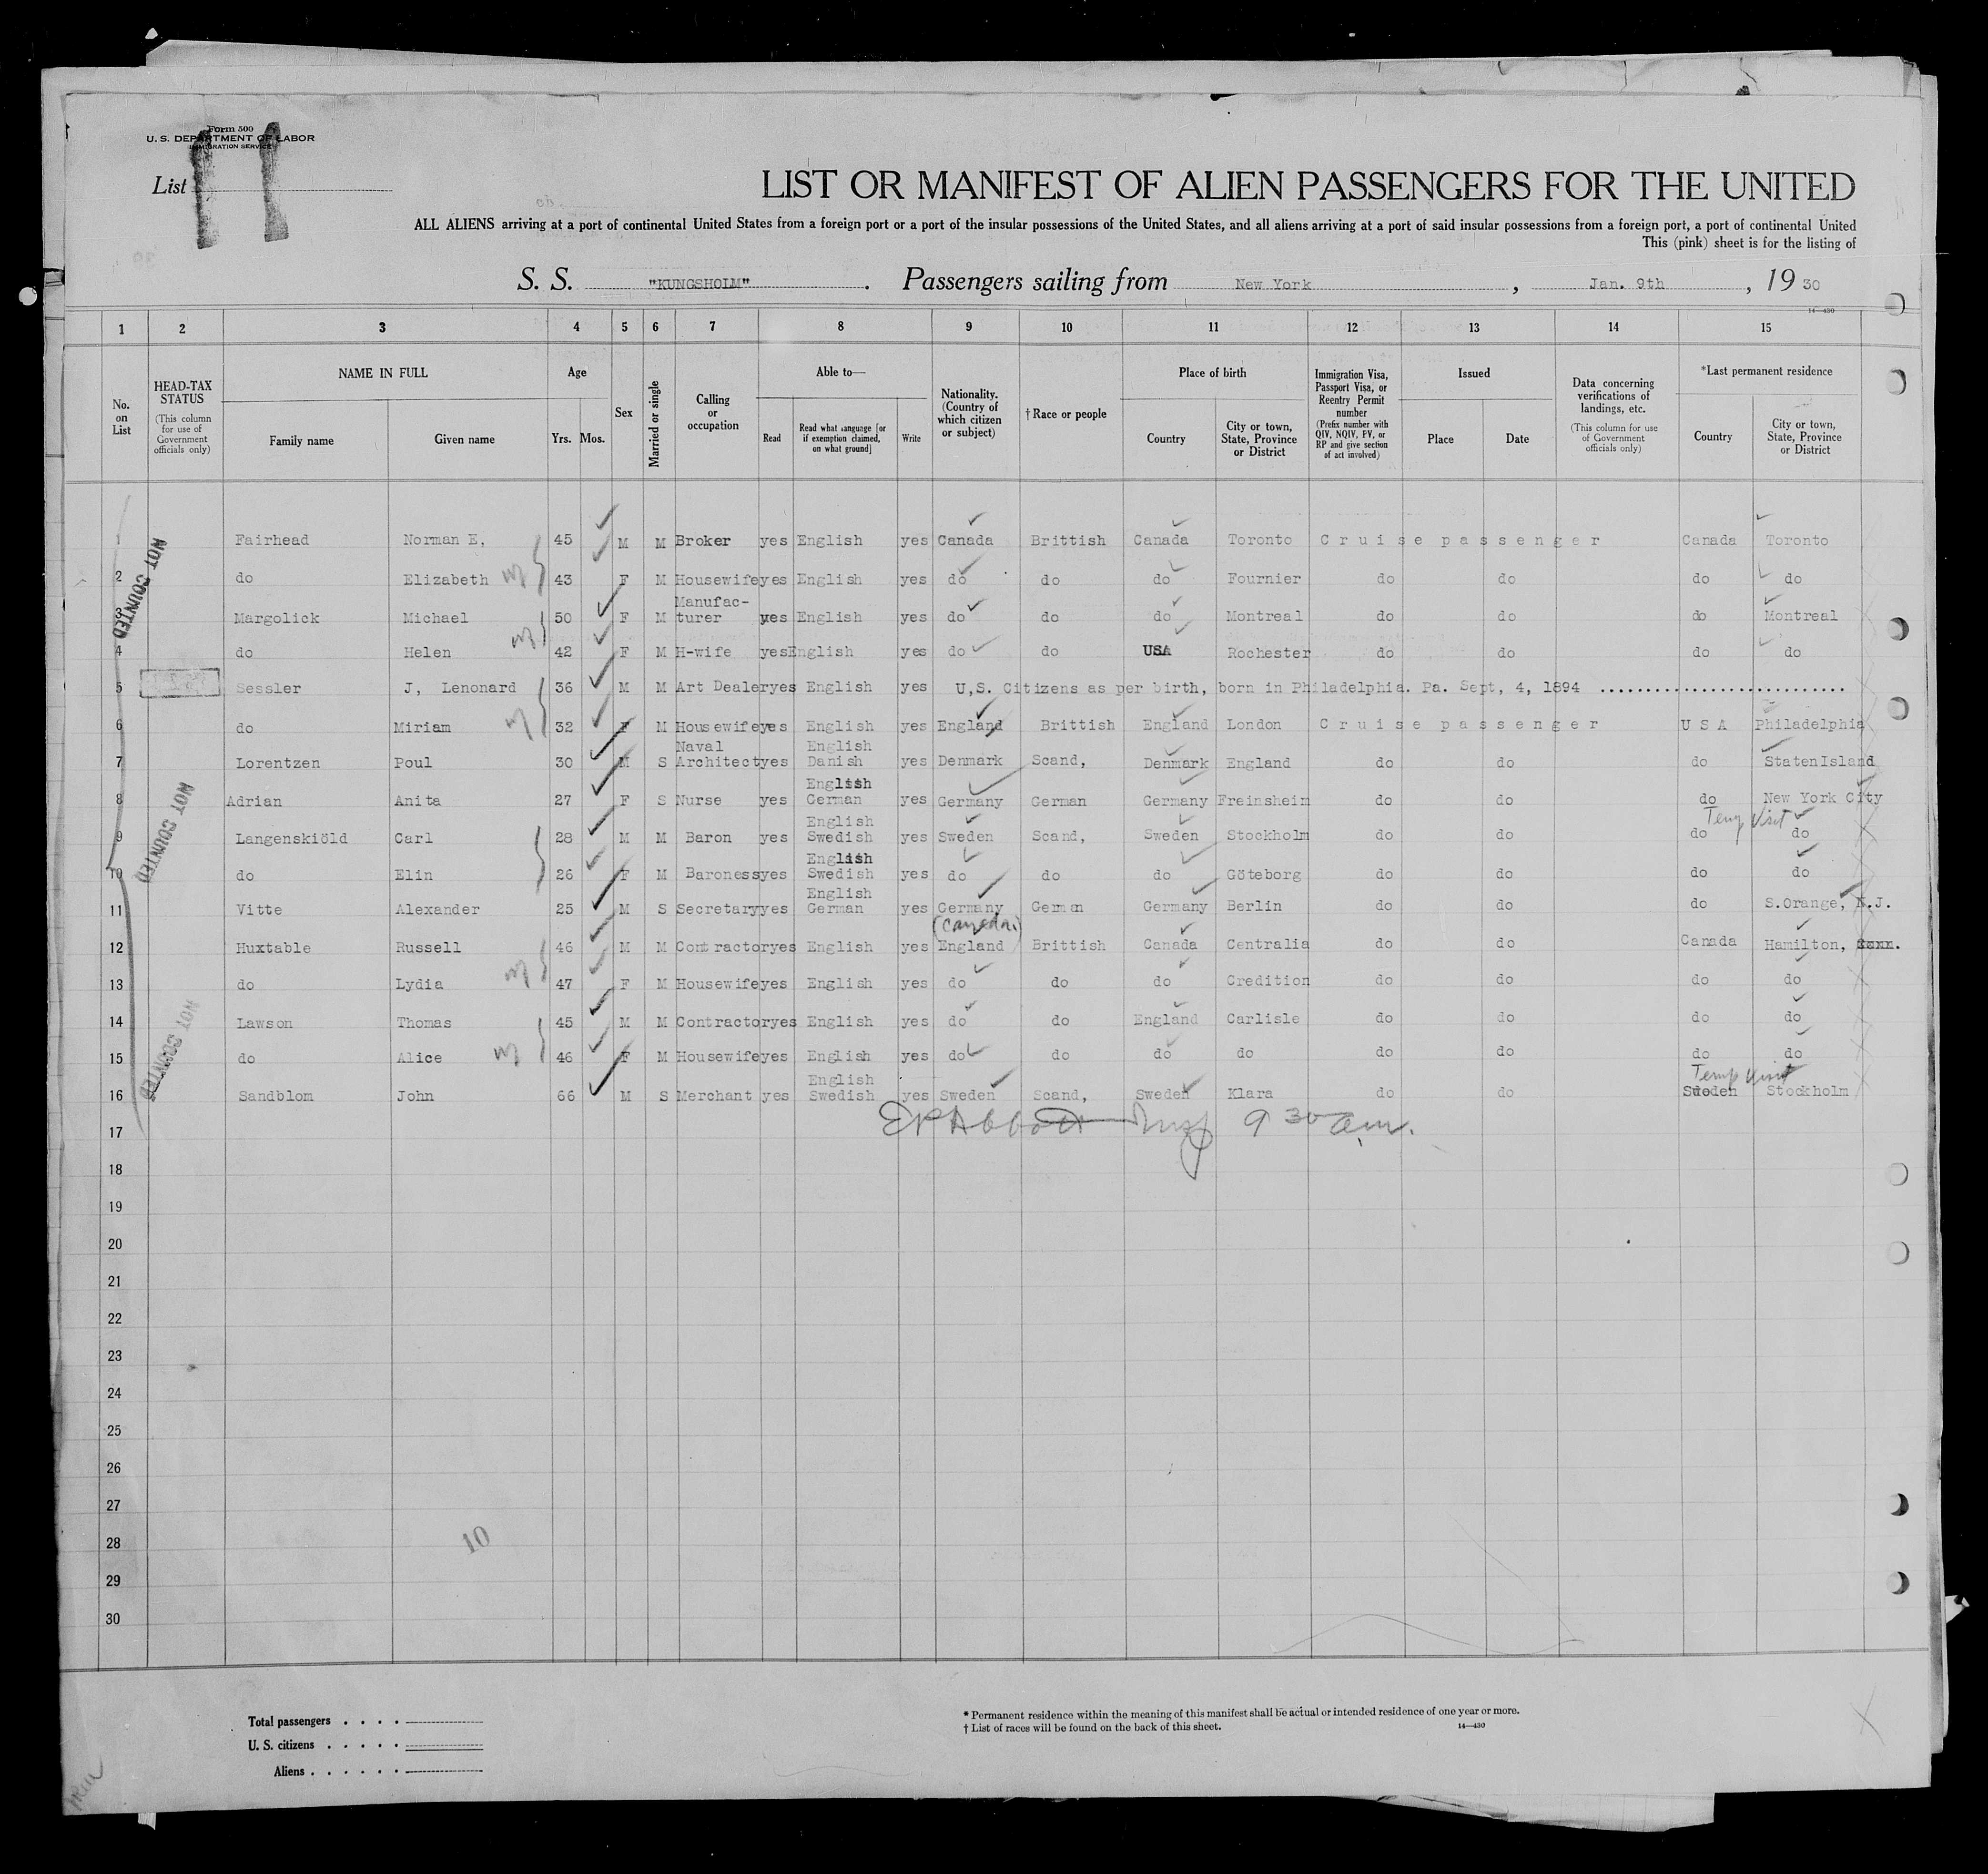 Form 500
U. S. DEPARTMENT OF LABOR
IMMIGRATION SERVICE
List 11
LIST OR MANIFEST OF ALIEN PASSENGERS FOR THE UNITED
ALL ALIENS arriving at a port of continental United States from a foreign port or a port of the insular possessions of the United States, and all aliens arriving at a port of said insular possessions from a foreign port, a port of continental United
This (pink) sheet is for the listing of
S. S. "KUNGSHOLM". Passengers sailing from New York, Jan. 9th, 19 30
14—430
1 2 3 4 5 6 7 8 9 10 11 12 13 14 15
No. on List
HEAD-TAX STATUS (This column for use of Government officials only)
NAME IN FULL Family name Given name
Age Yrs. Mos.
Sex
Married or single
Calling or occupation
Able to— Read Read what language [or if exemption claimed, on what ground] Write
Nationality. (Country of which citizen or subject)
† Race or people
Place of birth Country City or town, State, Province or District
Immigration Visa, Passport Visa, or Reentry Permit number (Prefix number with QIV, NQIV, PV, or RP and give section of act involved)
Issued Place Date
Data concerning verifications of landings, etc. (This column for use of Government officials only)
*Last permanent residence Country City or town, State, Province or District
NOT COUNTED
1 Fairhead Norman E, 45 M M Broker yes English yes Canada Brittish Canada Toronto Cruise passenger Canada Toronto
2 do Elizabeth 43 F M Housewife yes English yes do do do Fournier do do do do
3 Margolick Michael 50 F M Manufac-turer yes English yes do do do Montreal do do do Montreal
4 do Helen 42 F M H-wife yes English yes do do USA Rochester do do do do
5 Sessler J, Lenonard 36 M M Art Dealer yes English yes U,S. Citizens as per birth, born in Philadelphia. Pa. Sept, 4, 1894 ............................
6 do Miriam 32 F M Housewife yes English yes England Brittish England London Cruise passenger U S A Philadelphia
7 Lorentzen Poul 30 M S Naval Architect yes English Danish yes Denmark Scand, Denmark England do do do StatenIsland
8 Adrian Anita 27 F S Nurse yes English German yes Germany German Germany Freinsheim do do do New York City
NOT COUNTED
Temp Visit
9 Langenskiöld Carl 28 M M Baron yes English Swedish yes Sweden Scand, Sweden Stockholm do do do do
10 do Elin 26 F M Baroness yes English Swedish yes do do do Göteborg do do do do
11 Vitte Alexander 25 M S Secretary yes English German yes Germany German Germany Berlin do do do S.Orange, N.J.
(Canada)
12 Huxtable Russell 46 M M Contractor yes English yes England Brittish Canada Centralia do do Canada Hamilton,
13 do Lydia 47 F M Housewife yes English yes do do do Credition do do do do
14 Lawson Thomas 45 M M Contractor yes English yes do do England Carlisle do do do do
15 do Alice 46 F M Housewife yes English yes do do do do do do do do
NOT COUNTED
Temp Visit
16 Sandblom John 66 M S Merchant yes English Swedish yes Sweden Scand, Sweden Klara do do Sweden Stockholm
17 EP Abbott Insp 9 30 am.
18
19
20
21
22
23
24
25
26
27
28
10
29
30
Total passengers . . . .
U. S. citizens . . . . .
Aliens . . . . . .
* Permanent residence within the meaning of this manifest shall be actual or intended residence of one year or more.
† List of races will be found on the back of this sheet.
14—430